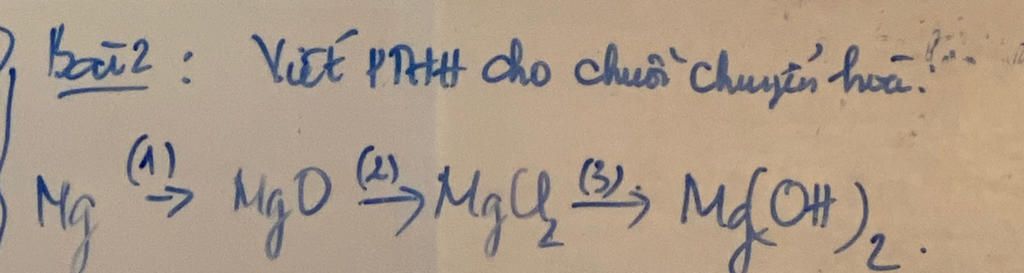 Bài 2: Viết PTHH cho chuỗi chuyển hoá.
Mg (1)→ MgO (2)→ MgCl2 (3)→ Mg(OH)2.